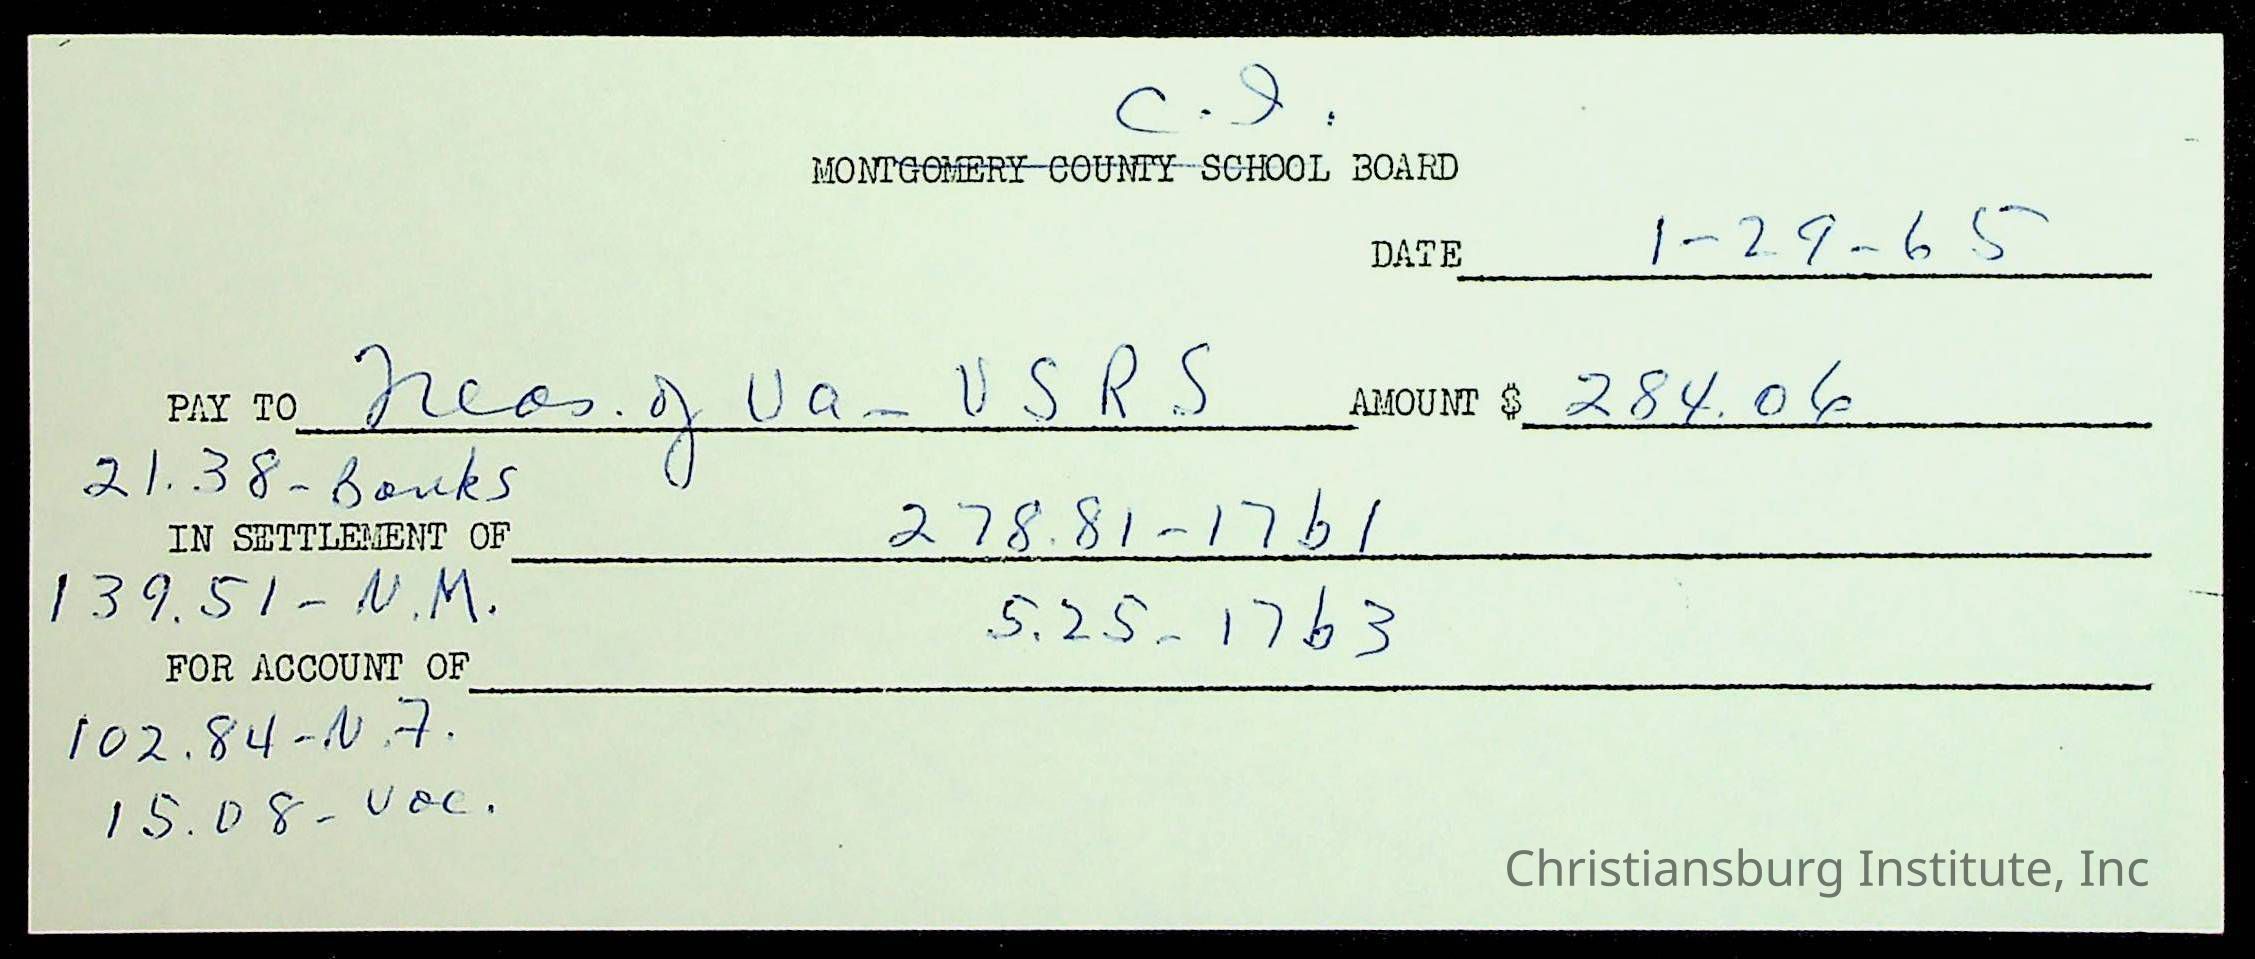 C.I.
MONTGOMERY COUNTY SCHOOL BOARD
DATE 1-29-65
PAY TO Treas. of Va - VSRS AMOUNT $ 284.06
21.38 - Banks
IN SETTLEMENT OF 278.81 - 17b1
139.51 - N.M.
5.25 - 17b3
FOR ACCOUNT OF
102.84 - N.F.
15.08 - Voc.
Christiansburg Institute, Inc